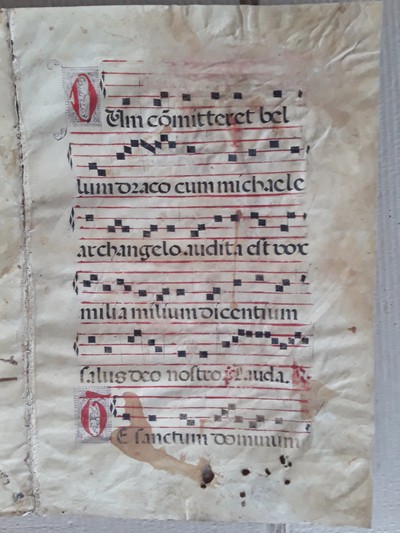 DUm cõmitteret bel
lum draco cum michaele
archangelo audita est vox
milia milium dicentium
salus deo nostro. Lauda.
TE sanctum dominum